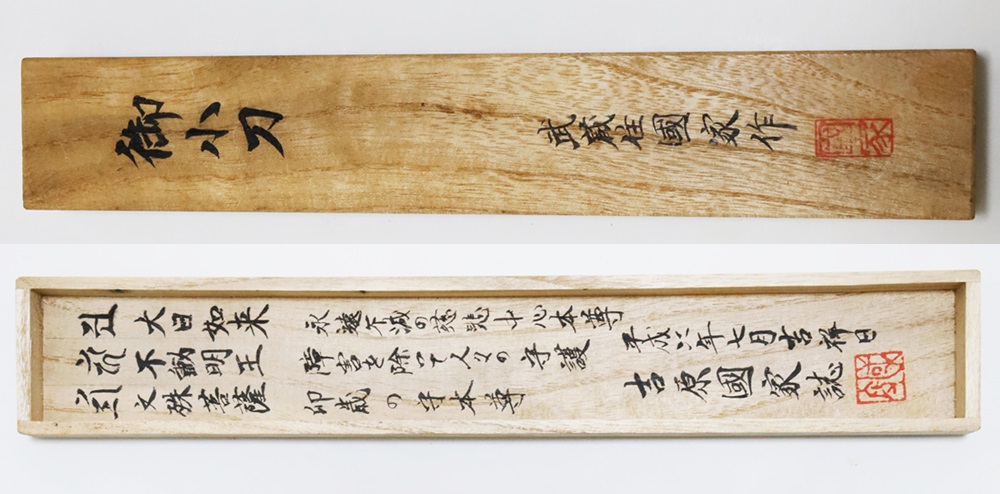 御小刀
武蔵住國家作
大日如来
不動明王
文殊菩薩
永遠不滅の慈悲 本尊
障害を除いて人々の守護
卯歳の守本尊
平成六年七月吉祥日
吉原國家誌